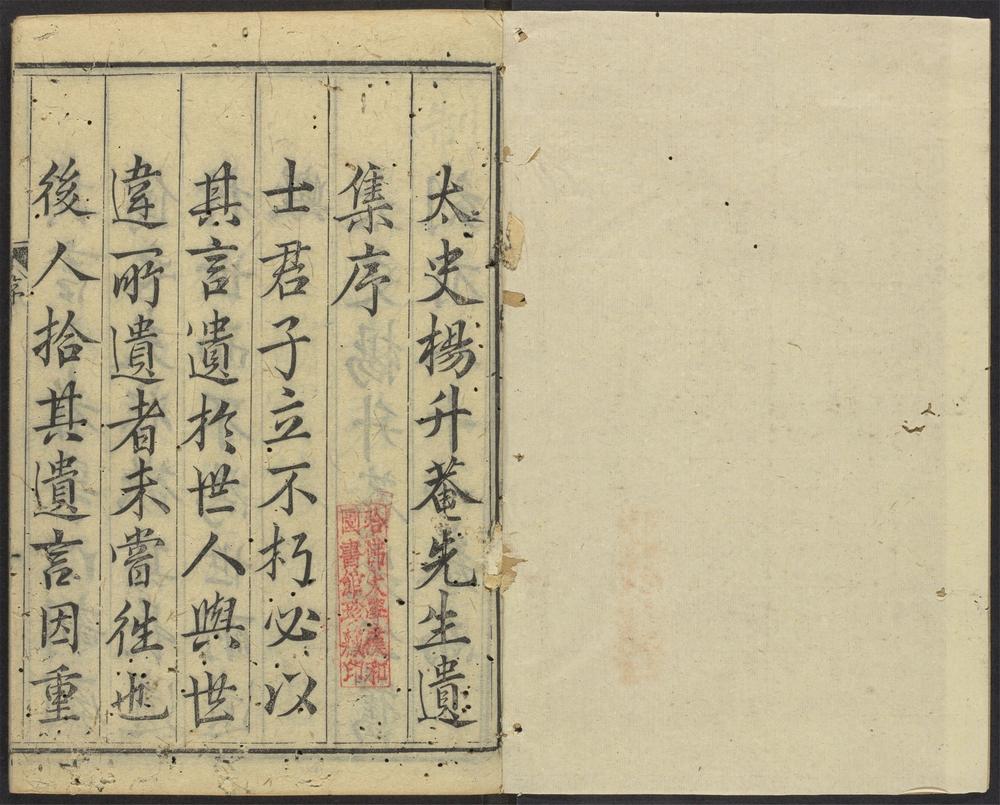 太史楊升菴先生遺
集序
士君子立不朽必以
其言遺於世人與世
違而所遺者未嘗徃也
後人拾其遺言因重
哈佛大學漢和
圖書館珍藏印
序